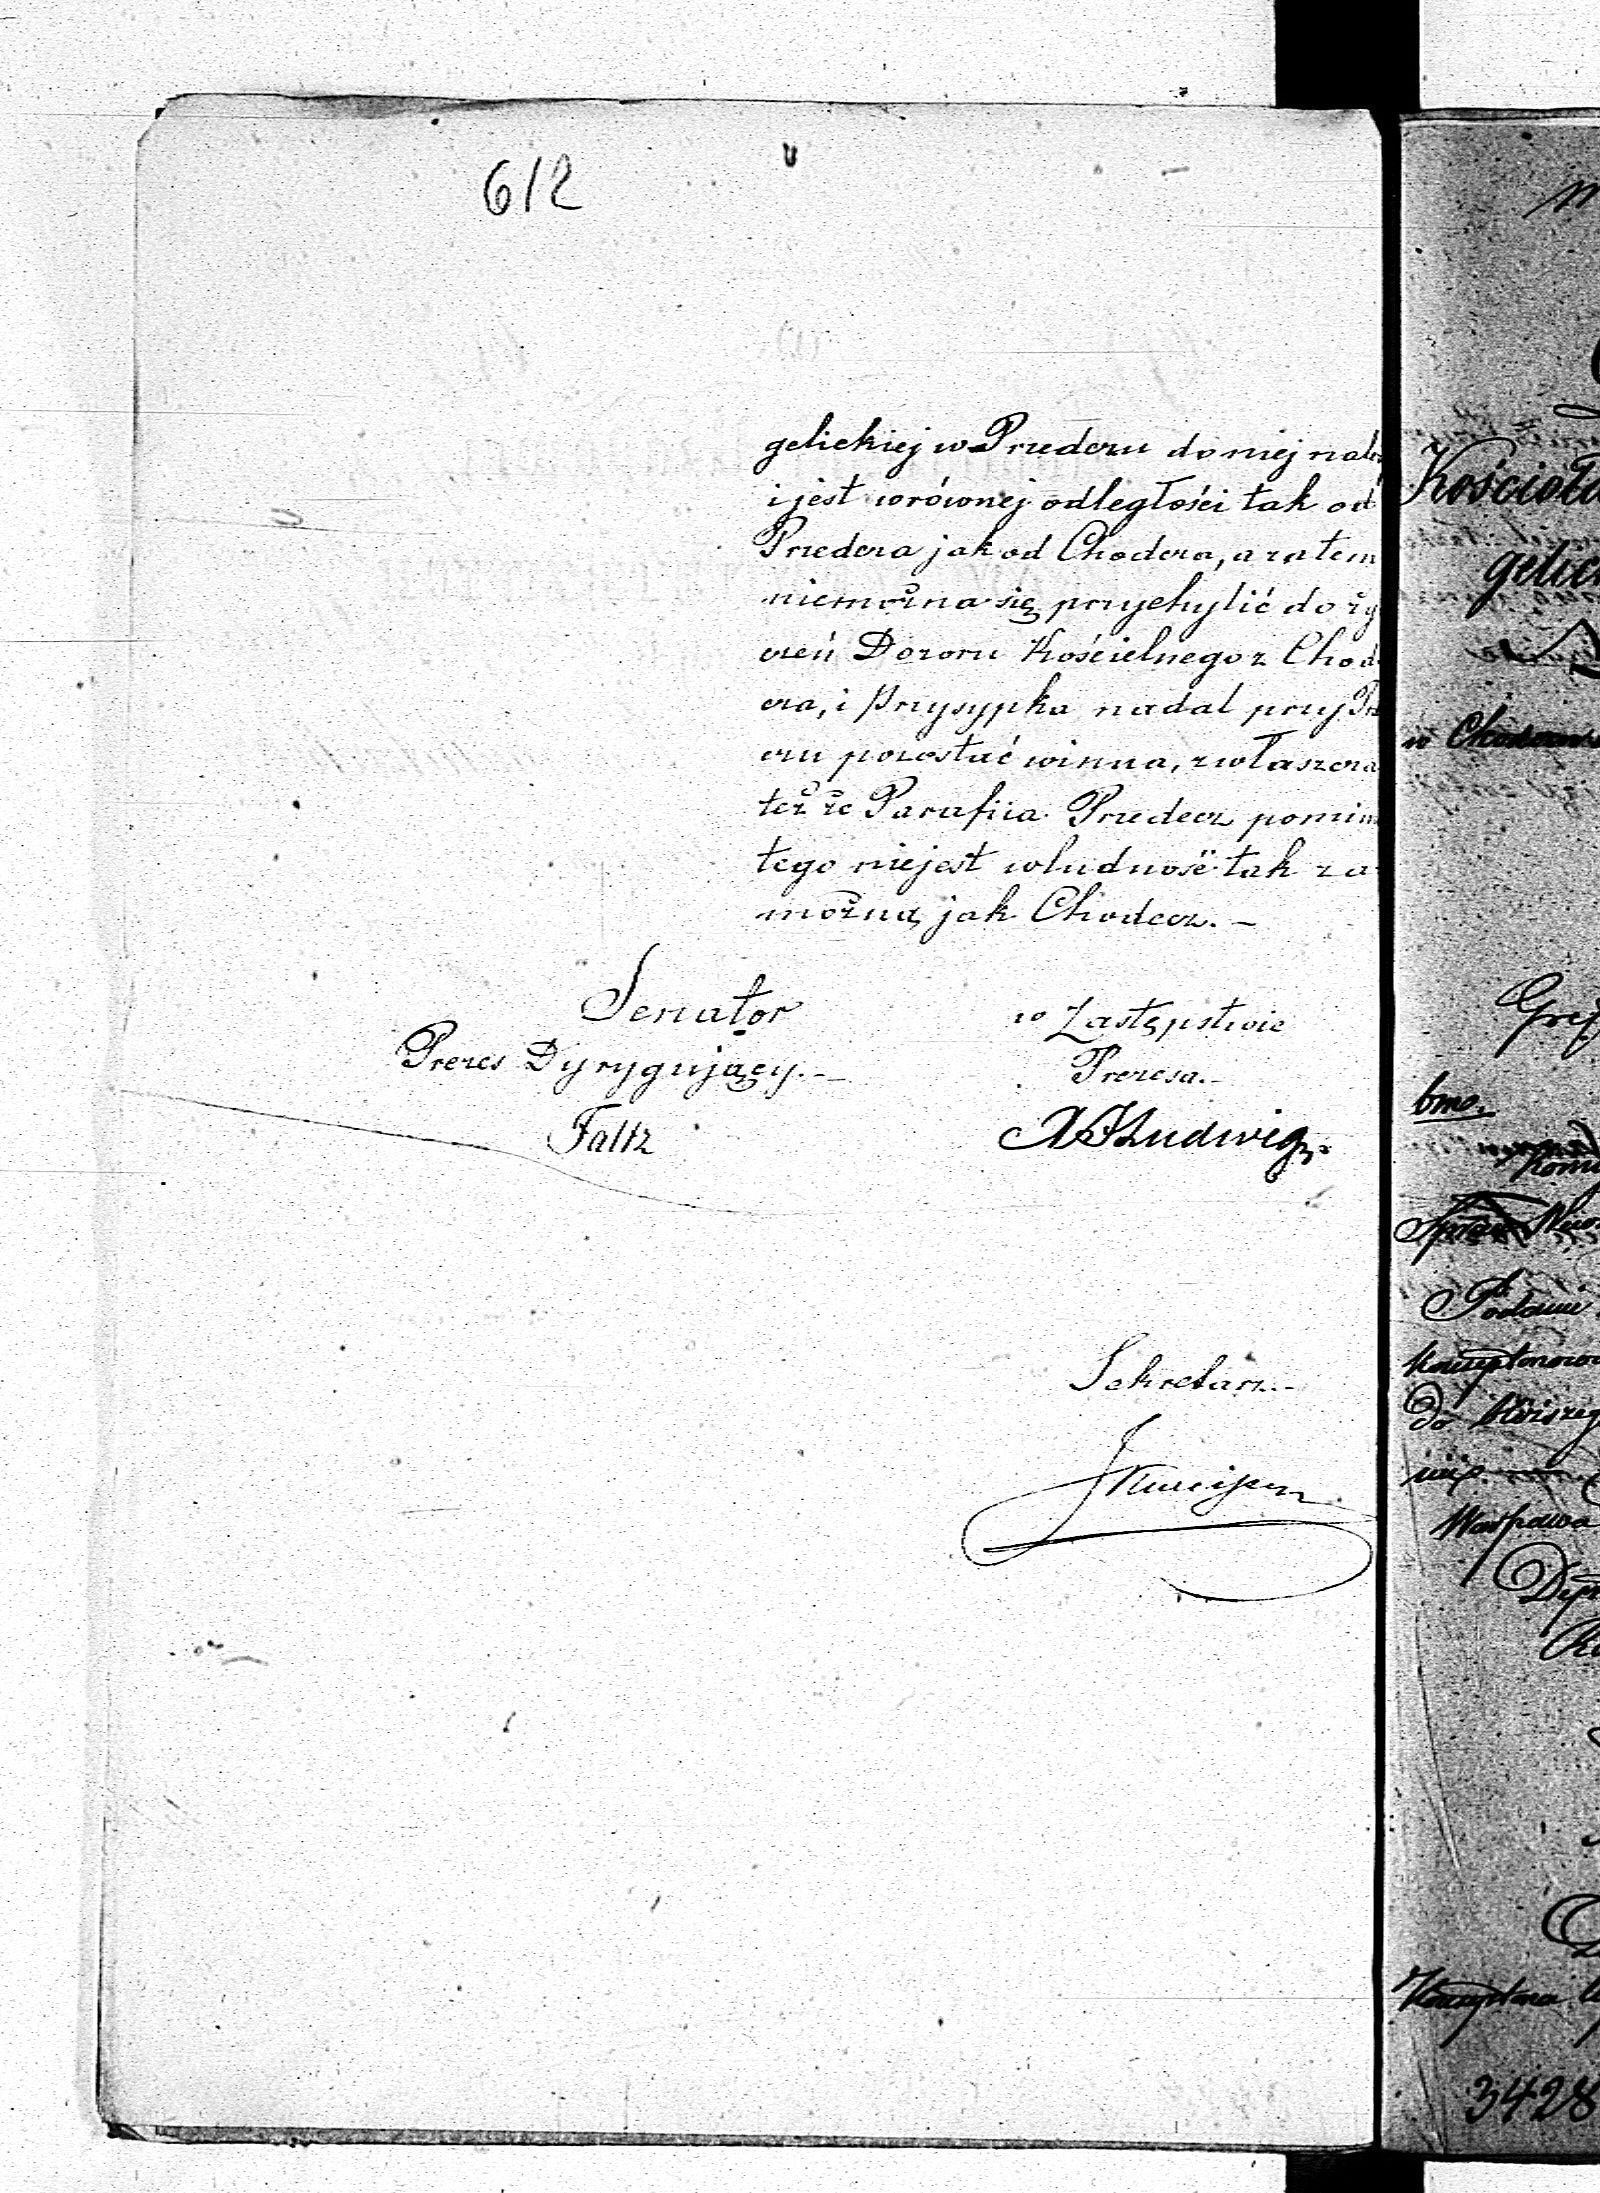 612
gelickiej w Przedczu do niej nale
i jest w równej odległości tak od
Przedcza jak od Chodcza, a zatem
niemożna się przychylić do ży
czeń Dozoru Kościelnego z Chod
cza, i Przysypka nadal przy Prze
czu pozostać winna, zwłaszcza
też że Parafiia Przedecz pomimo
tego niejest w ludność tak za
możną jak Chodecz. –
Senator
Prezes Dyrygujący. –
Faltz
w Zastępstwie
Prezesa. –
Ludwig
Sekretarz. –
Kościoła
gelic
w
Gref
bmo.
Komi
Spraw
Podanie
do
Warszawa
3428